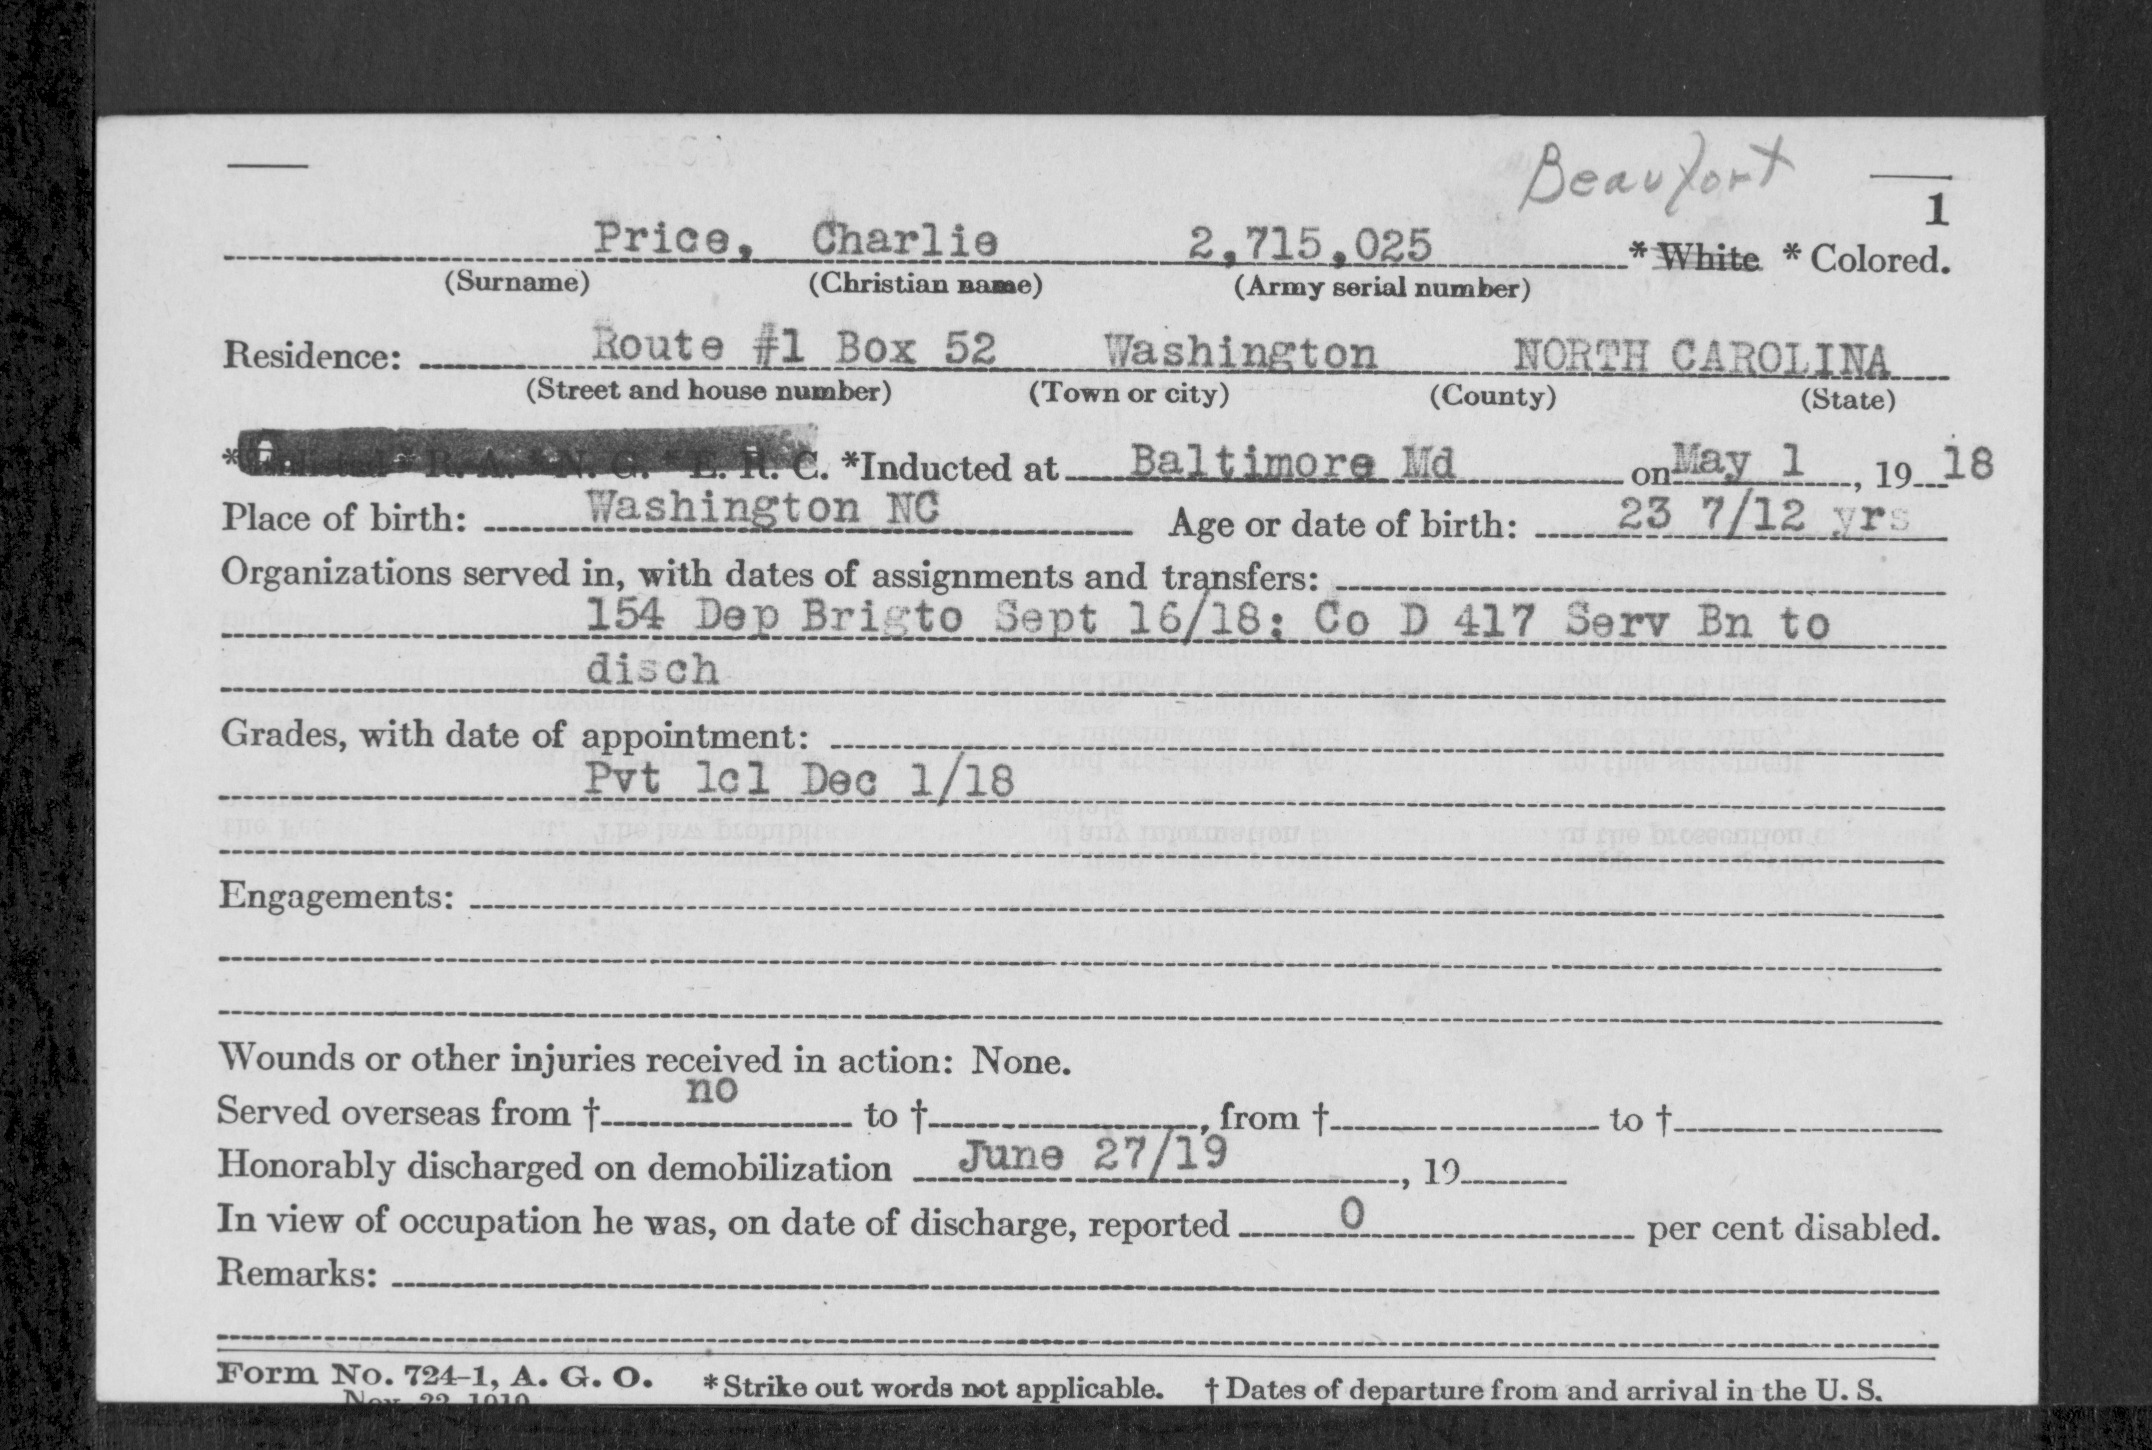 Beaufort
1
Price, Charlie 2,715,025 * White * Colored.
(Surname) (Christian name) (Army serial number)
Residence: Route #1 Box 52 Washington NORTH CAROLINA
(Street and house number) (Town or city) (County) (State)
*Enlisted * R. A. * N. G. * E. R. C. *Inducted at Baltimore Md on May 1, 19 18
Place of birth: Washington NC Age or date of birth: 23 7/12 yrs
Organizations served in, with dates of assignments and transfers:
154 Dep Brigto Sept 16/18; Co D 417 Serv Bn to
disch
Grades, with date of appointment:
Pvt 1cl Dec 1/18
Engagements:
Wounds or other injuries received in action: None.
Served overseas from † no to †, from † to †
Honorably discharged on demobilization June 27/19, 19
In view of occupation he was, on date of discharge, reported 0 per cent disabled.
Remarks:
Form No. 724-1, A. G. O. *Strike out words not applicable. † Dates of departure from and arrival in the U. S.
Nov. 22, 1919